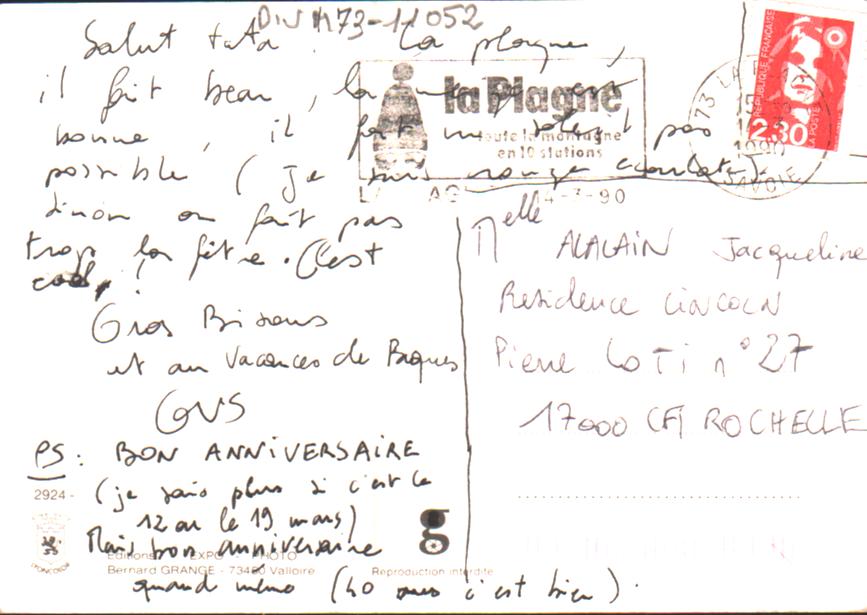 DIV M73-11052
Salut tata. La plagne,
il fait beau, la neige est
bonne, il fait un soleil pas
possible (je suis rouge écarlate).
sinon on fait pas
trop la fête. C'est
cool !
Gros Bisous
et au Vacances de Paques
GUS
PS : BON ANNIVERSAIRE
(je sais plus si c'est le
12 ou le 19 mars)
Mais bon anniversaire
quand même (40 ans c'est bien).
la Plagne
toute la montagne
en 10 stations
4-3-90
73 LA
1990
SAVOIE
RÉPUBLIQUE FRANÇAISE
LA POSTE
2,30
Melle ALALAIN Jacqueline
Residence LINCOLN
Pierre LoTi n°27
17000 LA ROCHELLE
2924 -
Editions EXPO PHOTO
Bernard GRANGE - 73450 Valloire
Reproduction interdite
g